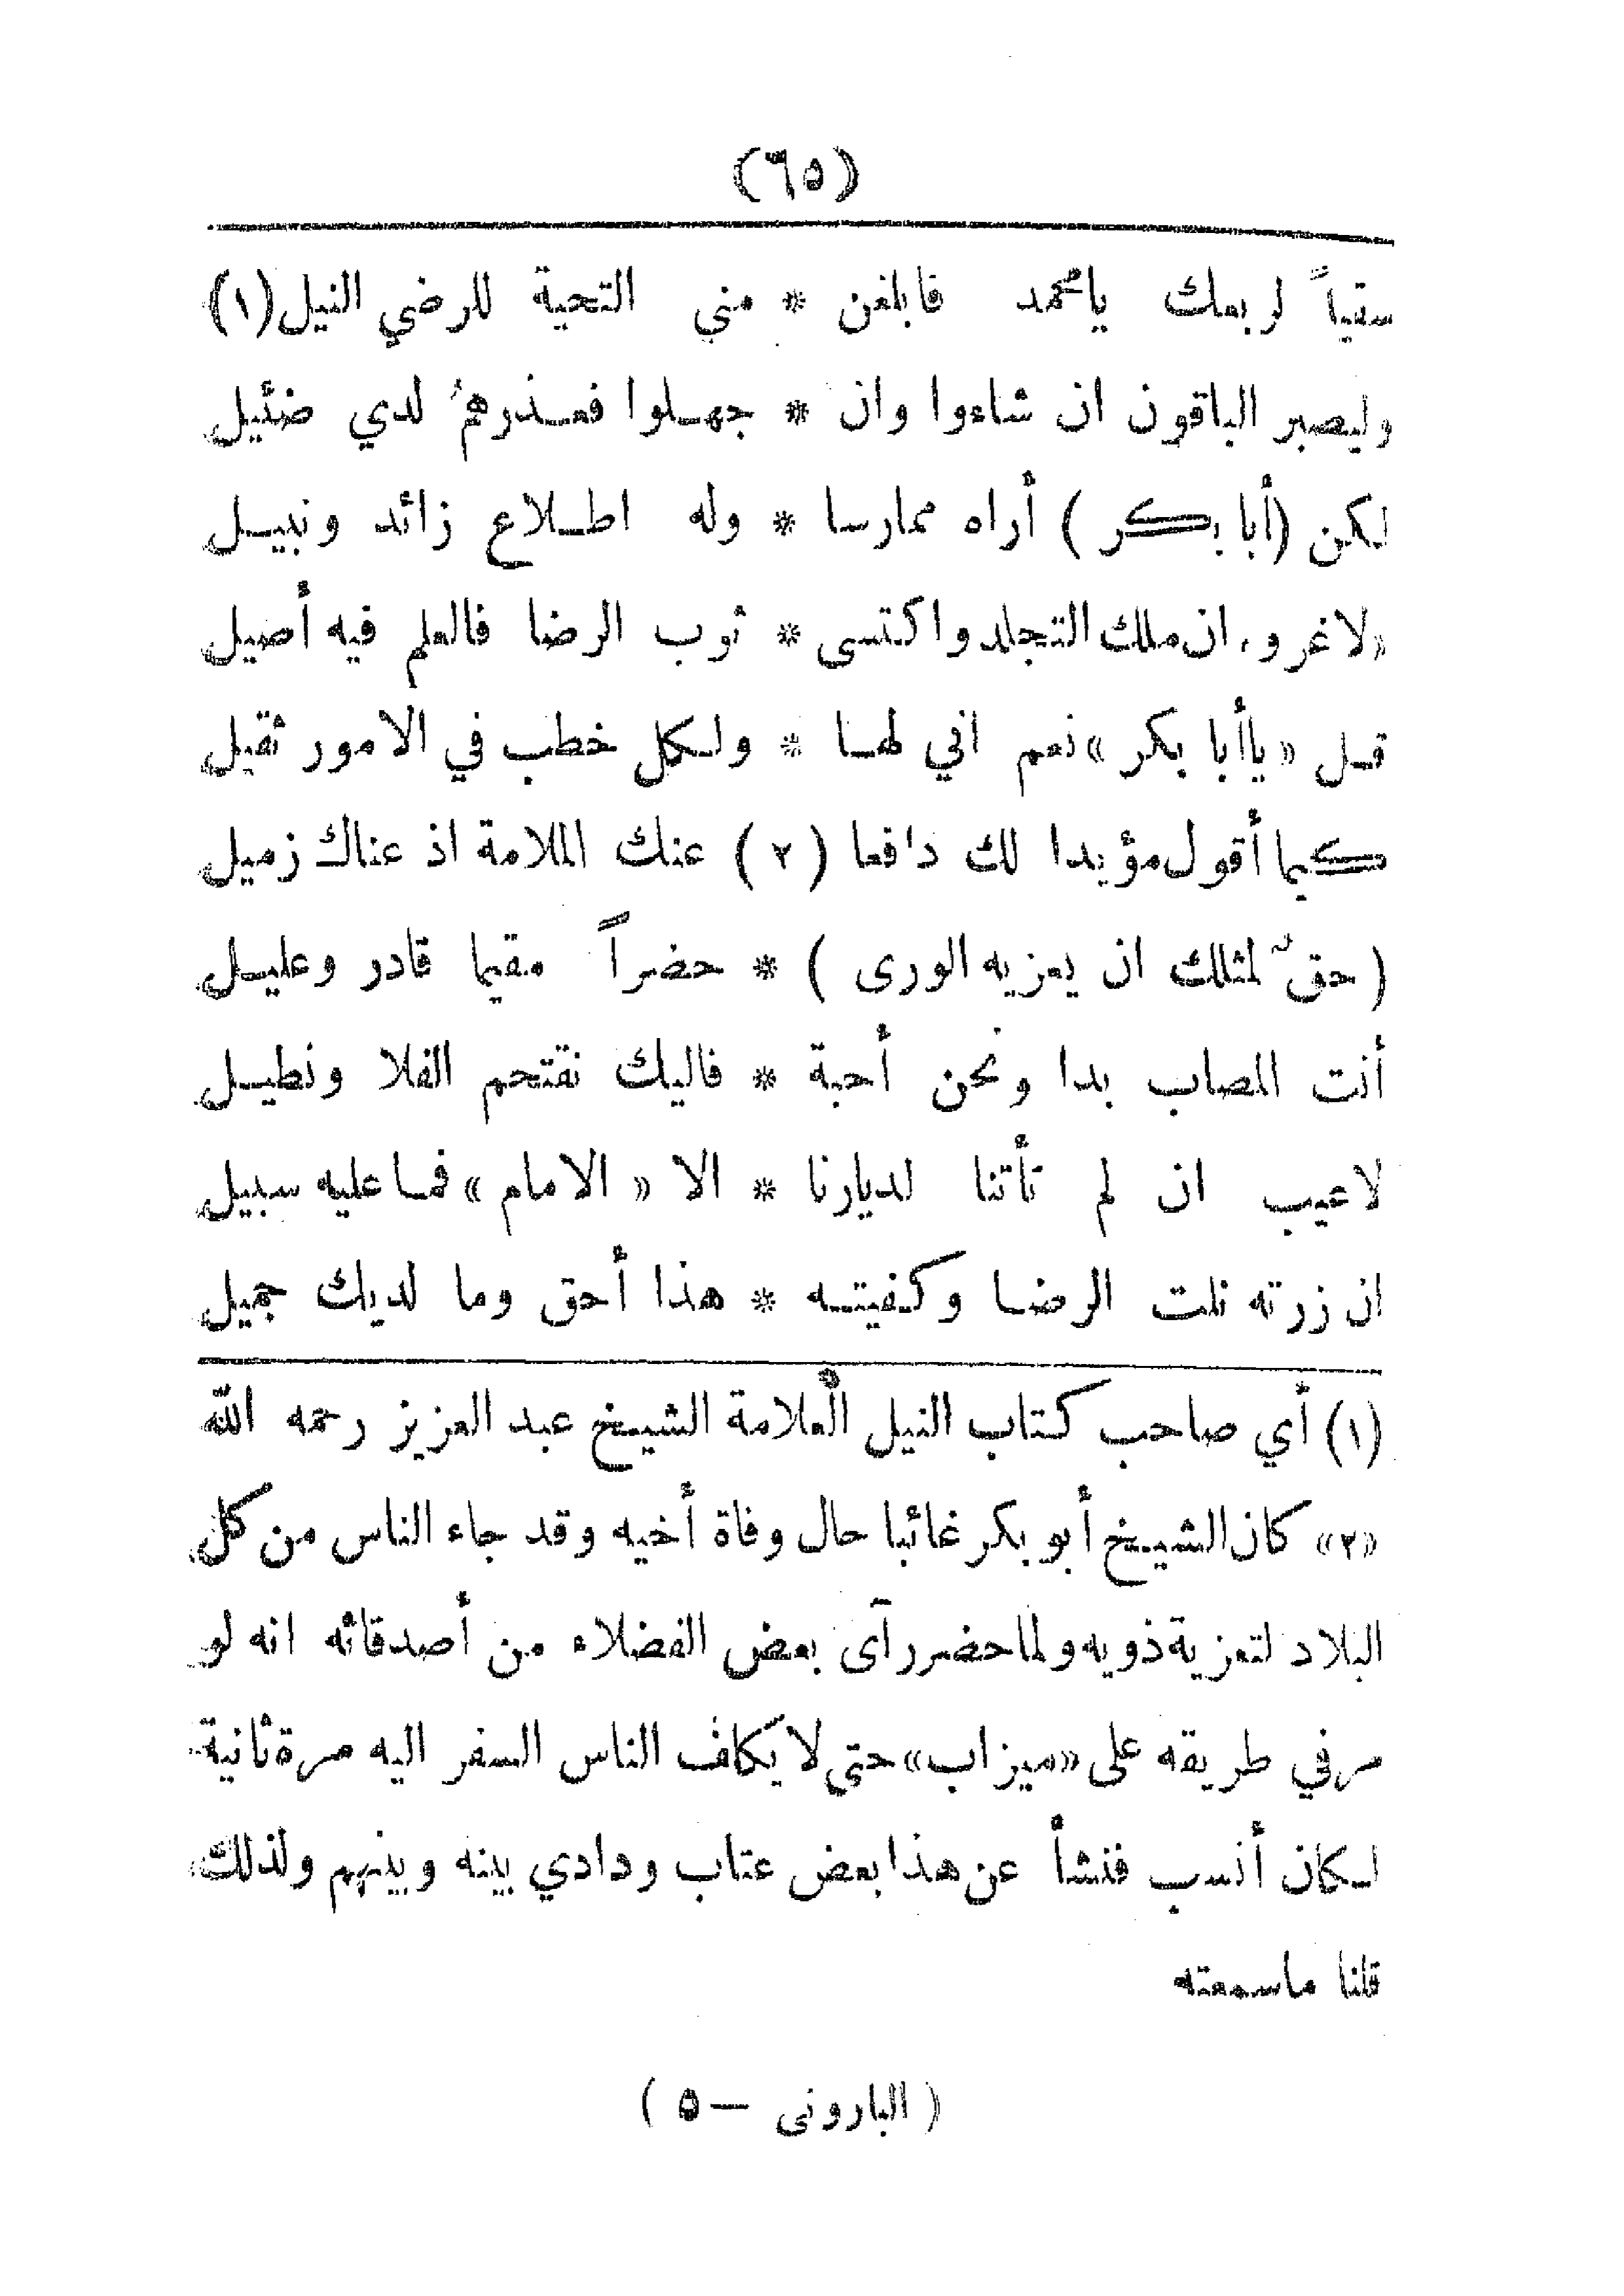 (٦٥)
سقياً لربعك يامحمد فابلغن * مني التحية للرضي النيل(١)
وليصبر الباقون ان شاءوا وان * جهلوا فعذرهمُ لدي ضئيل
لكن (أبا بكر) أراه ممارسا * وله اطلاع زائد ونبيل
«لاغرو، ان ملك التجلد واكتسى * ثوب الرضا فالعلم فيه أصيل
قل «ياأبا بكر» نعم اني لها * ولكل خطب في الامور ثقيل
كيما أقول مؤيدا لك دافعا (٢) عنك الملامة اذ عناك زميل
(حقٌ لمثلك ان يعزيه الورى) * حضراً مقيما قادر وعليل
أنت المصاب بدا ونحن أحبة * فاليك نقتحم الفلا ونطيل
لاعيب ان لم تأتنا لديارنا * الا «الامام» فما عليه سبيل
ان زرته نلت الرضا وكفيته * هذا أحق وما لديك جميل
(١) أي صاحب كتاب النيل العلامة الشيخ عبد العزيز رحمه الله
«٢» كان الشيخ أبو بكر غائبا حال وفاة أخيه وقد جاء الناس من كل
البلاد لتعزية ذويه ولما حضر رآى بعض الفضلاء من أصدقائه انه لو
مر في طريقه على «ميزاب» حتى لا يكلف الناس السفر اليه مرة ثانية
لكان أنسب فنشأ عن هذا بعض عتاب ودادي بينه وبينهم ولذلك
قلنا ماسمعته
(البارونى — ٥)